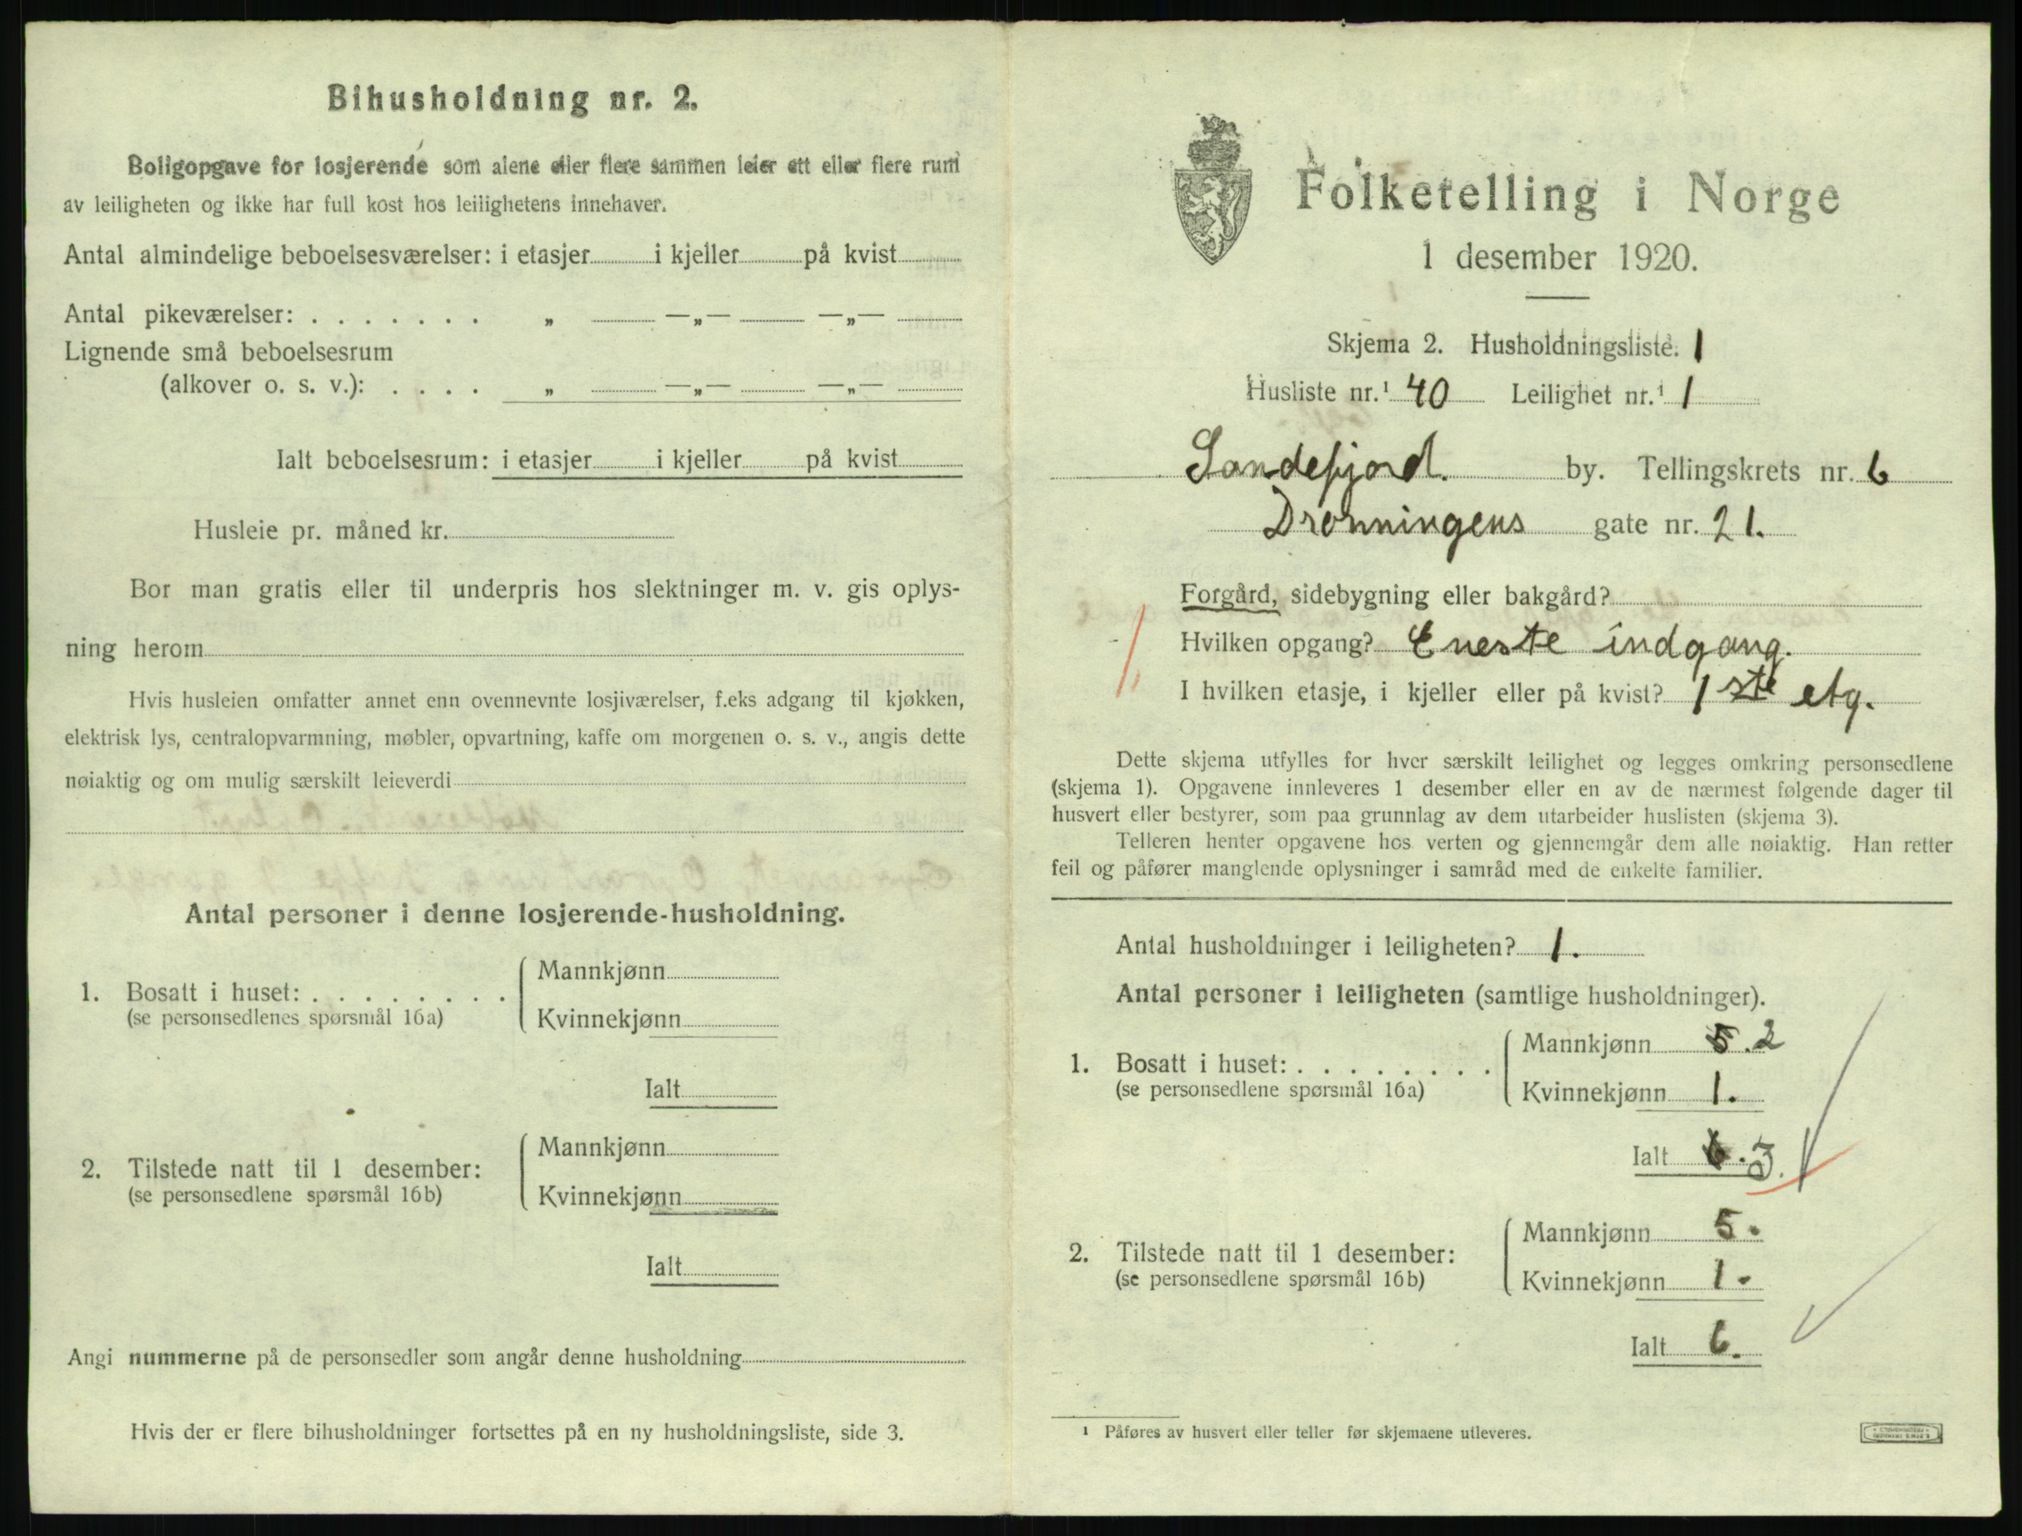 Bihusholdning nr. 2.
Boligopgave for losjerende som alene eller flere sammen leier ett eller flere rum
av leiligheten og ikke har full kost hos leilighetens innehaver.
Antal almindelige beboelsesværelser: i etasjer i kjeller på kvist
Antal pikeværelser: . . . . . . . „ —„— —„—
Lignende små beboelsesrum
(alkover o. s. v.): . . . . „ —„— —„—
Ialt beboelsesrum: i etasjer i kjeller på kvist
Husleie pr. måned kr.
Bor man gratis eller til underpris hos slektninger m. v. gis oplys-
ning herom
Hvis husleien omfatter annet enn ovennevnte losjiværelser, f.eks adgang til kjøkken,
elektrisk lys, centralopvarmning, møbler, opvartning, kaffe om morgenen o. s. v., angis dette
nøiaktig og om mulig særskilt leieverdi
Antal personer i denne losjerende-husholdning.
1. Bosatt i huset: . . . . . . . .
(se personsedlenes spørsmål 16a)
Mannkjønn
Kvinnekjønn
Ialt
2. Tilstede natt til 1 desember:
(se personsedlene spørsmål 16b)
Mannkjønn
Kvinnekjønn
Ialt
Angi nummerne på de personsedler som angår denne husholdning
Hvis der er flere bihusholdninger fortsettes på en ny husholdningsliste, side 3.
Folketelling i Norge
1 desember 1920.
Skjema 2. Husholdningsliste. 1
Husliste nr.¹ 40 Leilighet nr.¹ 1
Sandefjord. by. Tellingskrets nr. 6
Dronningens gate nr. 21.
Forgård, sidebygning eller bakgård?
Hvilken opgang? Eneste indgang.
I hvilken etasje, i kjeller eller på kvist? 1ste etg.
Dette skjema utfylles for hver særskilt leilighet og legges omkring personsedlene
(skjema 1). Opgavene innleveres 1 desember eller en av de nærmest følgende dager til
husvert eller bestyrer, som paa grunnlag av dem utarbeider huslisten (skjema 3).
Telleren henter opgavene hos verten og gjennemgår dem alle nøiaktig. Han retter
feil og påfører manglende oplysninger i samråd med de enkelte familier.
Antal husholdninger i leiligheten? 1.
Antal personer i leiligheten (samtlige husholdninger).
1. Bosatt i huset: . . . . . . . .
(se personsedlene spørsmål 16a)
Mannkjønn 5. 2
Kvinnekjønn 1.
Ialt 6. 3.
2. Tilstede natt til 1 desember:
(se personsedlene spørsmål 16b)
Mannkjønn 5.
Kvinnekjønn 1.
Ialt 6.
¹ Påføres av husvert eller teller før skjemaene utleveres.